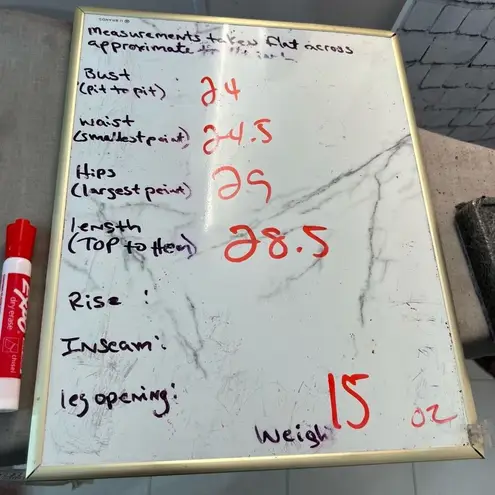 measurements taken flat across
approximate to the inch
Bust
(pit to pit) 24
waist
(smallest point) 24.5
Hips
(largest point) 29
length
(TOP to Hem) 28.5
Rise :
Inseam:
leg opening:
15 oz
Weigh
EXPO
dry erase
chisel